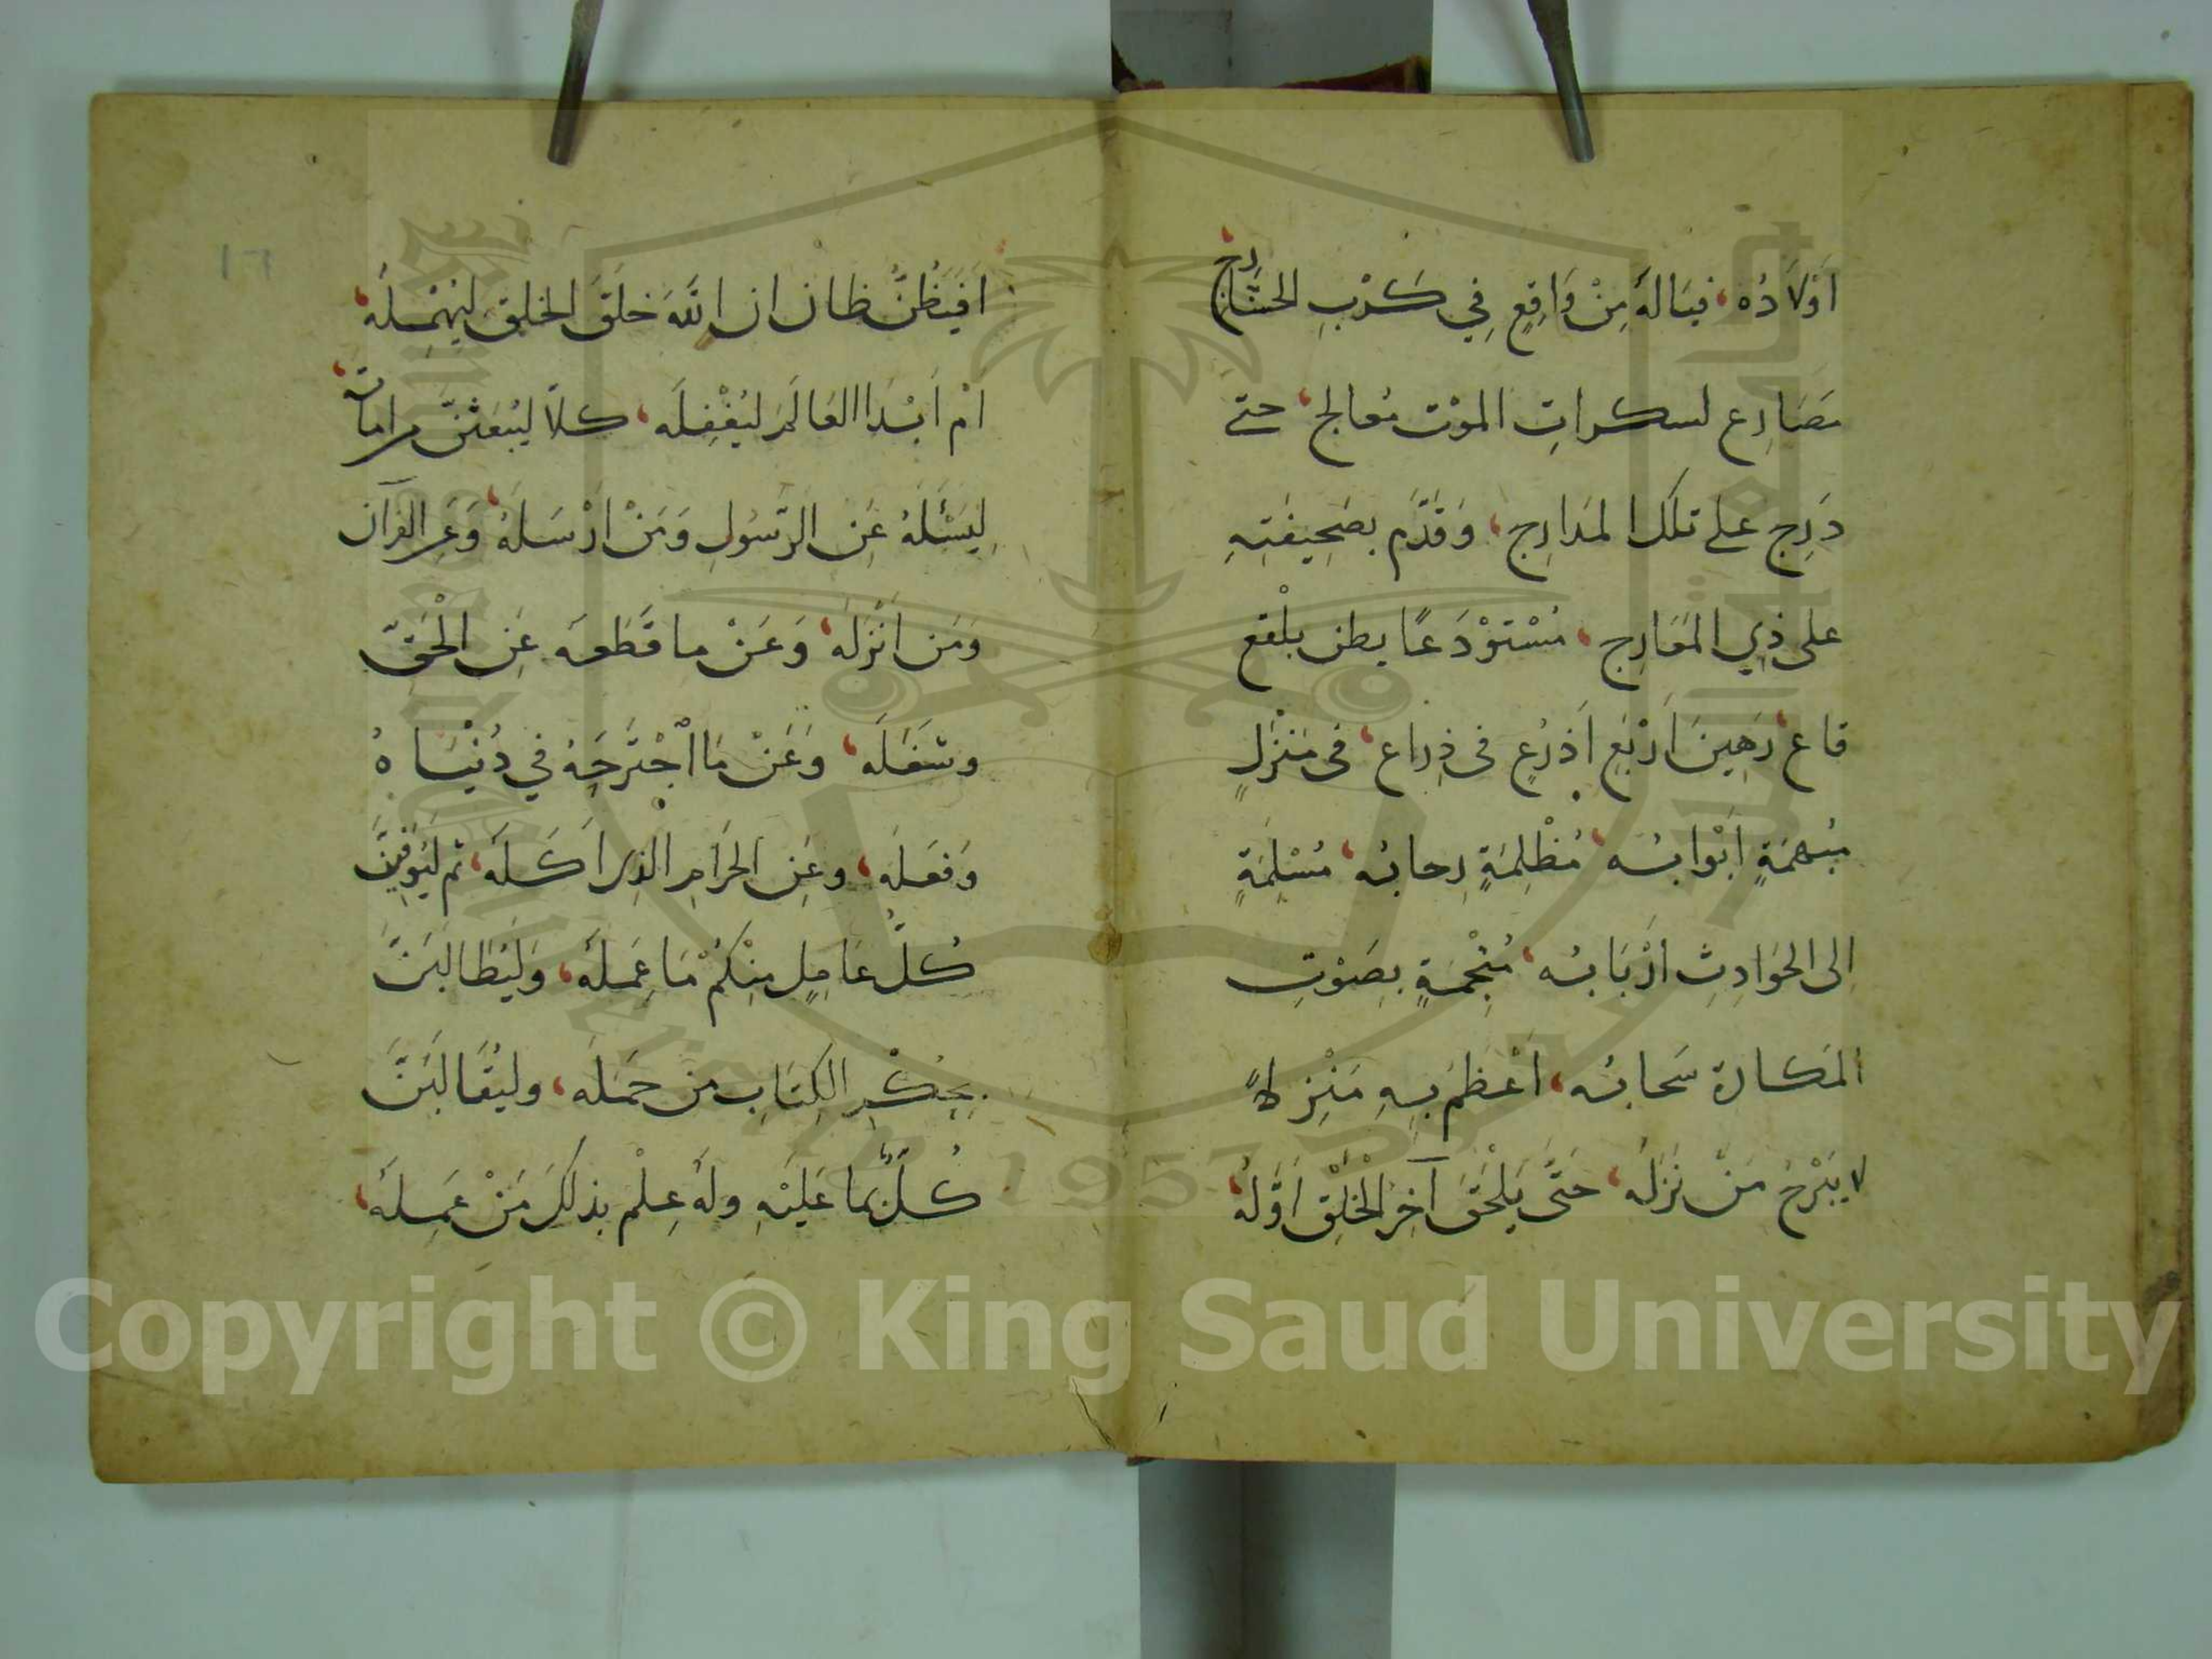 اَوْلَادُه، فيَالَهُ مِنْ وَاقِعٍ فِي كَرْبِ الحشَارج
مَصَارِع لسكراتِ الموْت مُعالج، حتى
دَرَج على تلك المدَارِج، وَقَدَّم بصَحِيفَتِهِ
على ذِي المَعَارِج، مُسْتَوْدَعًا ببطن بلْقع
قاع، رَهِينَ اَرْبَعِ اَذرُعٍ فى ذِراع، فى مَنْزلٍ
مُبْهمَةٍ اَبْوابُه، مُظْلِمَةٍ رِحابُه، مُسْلِمَةٍ
اِلى الحَوَادِثِ اَرْبَابُه، مُثْجِمَةٍ بِصَوْتِ
المَكاره سَحابُه، اَعْظمَ بِهِ مَنْزِلاً
لا يَبْرَحُ مَنْ نَزَلَهُ، حَتَّى يَلْحَقَ آخِرُ الْخَلْقِ اَوَّلَهُ،
اَفَيَظُنُّ ظان ان اللهَ خلَقَ الخلق ليُهْمِلَهُ،
اَمْ اَبْدَا العَالَمَ ليُغْفِلَه، كلَّا ليَبْعَثَنَّ مراماتَه،
لِيَسْئَلَهُ عَنِ الرَّسُولِ وَمَنْ اَرْسَلَهُ، وَعَنِ القرآن
وَمَن اَنْزَلَهُ، وَعَنْ ما قَطَعَه عَنِ الْحَقّ
وشَغَلَه، وَعَنْ مَا اجْتَرَحَهُ فِي دُنْيَاهُ
وَفَعَلَه، وعَنِ الحَرَامِ الَّذِى اَكَلَه، ثم ليُوَفِّيَنَّ
كُلَّ عَامِلٍ مِنْكُمْ مَا عَمِلَهُ، وَليُطَالِبَنَّ
بِحُكْمِ الكِتَابِ مَنْ حَمَلَه، وليُقَابِلَنَّ
كُلًّا بِمَا عَلَيْهِ ولَهُ عِلْمَ بذلكَ مَنْ عَمِلَهُ،
١٦
Copyright © King Saud University
1957